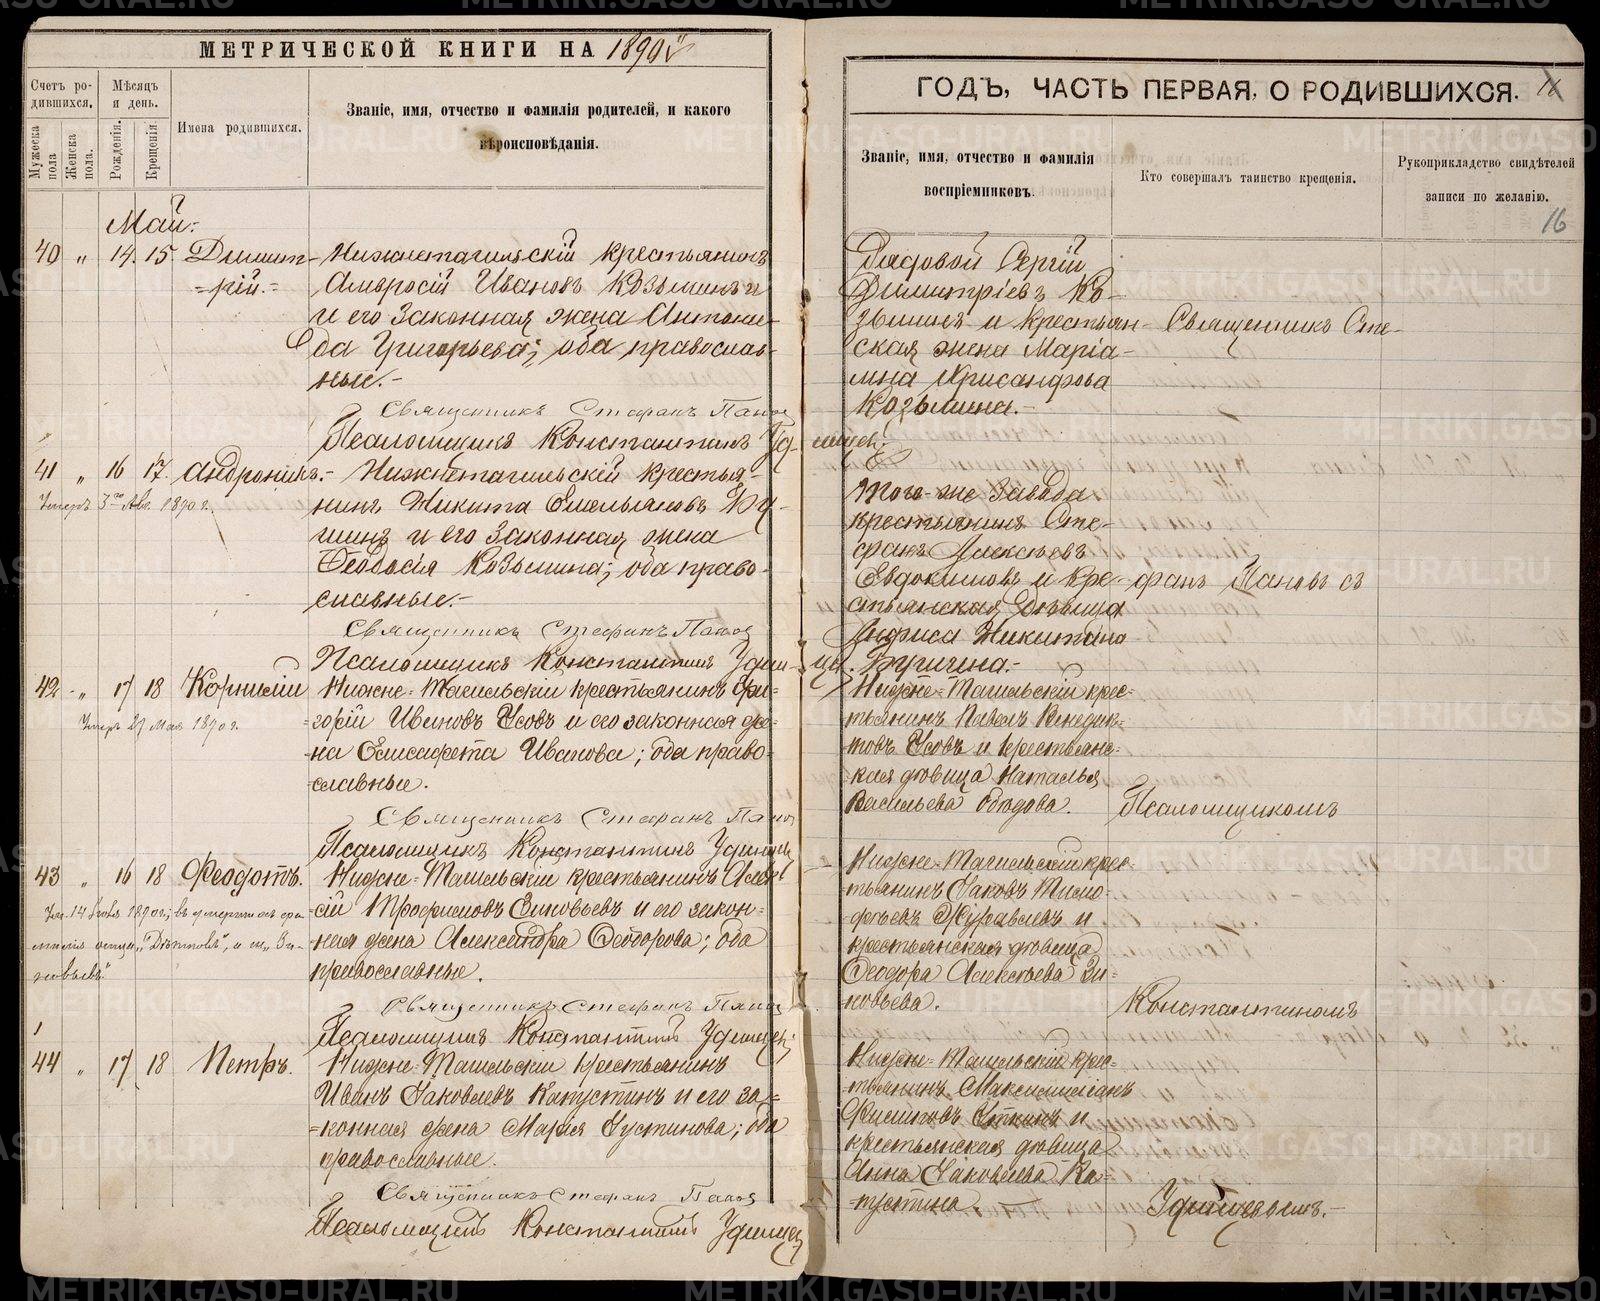 МЕТРИЧЕСКОЙ КНИГИ НА 1890й
Счетъ ро-
дившихся.
Мѣсяцъ
и день.
Мужеска
пола
Женска
пола.
Рожденія.
Крещенія.
Имена родившихся.
Званіе, имя, отчество и фамилія родителей, и какого
вѣроисповѣданія.
Май.
40 " 14. 15. Димит- Нижнетагильскій крестьянинъ
=рій.= Амвросій Ивановъ Козьминъ
и его законная жена Антони-
да Григорьева; оба православ-
ные.-
Священникъ Стефанъ Панов
Псаломщикъ Константинъ Уд-инцев
41 " 16 17. Андроникъ.- Нижнетагильскій крестья-
Умеръ 3го Авг. 1890 г. нинъ Никита Емельяновъ Бу-
и его законная жена
Ѳеодосія Козьмина; оба право-
славные.-
Священникъ Стефанъ Панов
Псаломщикъ Константинъ Удин-це.
42 " 17 18 Корнилій Нижне-Тагильскій крестьянинъ Гри-
Умеръ 27 Мая 1890 г. =горій Ивановъ Усовъ и его законная же=
-на Елисавета Иванова; оба право-
-славные.
Священникъ Стефанъ Панов
Псаломщикъ Константинъ Удинцев
43 " 16 18 Ѳеодотъ. Нижне-Тагильскій крестьянинъ Алек
Ум. 14 1890 г.; въ =сій Трофимовъ Зиновьевъ и его закон=
=ная жена Александра Ѳеодорова; оба
"Зи-
новьевъ" православные.
Священникъ Стефанъ Панов
Псаломщикъ Константинъ Удинцев
44 " 17 18 Петръ. Нижне-Тагильскій крестьянинъ
Иванъ Яковлевъ Капустинъ и его за=
=конная жена Марія Густинова; оба
православные.
Священникъ Стефанъ Панов
Псаломщикъ Константинъ Удинцев
ГОДЪ, ЧАСТЬ ПЕРВАЯ, О РОДИВШИХСЯ.
Званіе, имя, отчество и фамилія
воспріемниковъ.
Кто совершалъ таинство крещенія.
Рукоприкладство свидѣтелей
записи по желанію.
16
Рядовой Сергій
Димитріевъ Ко-
зьминъ и крестьян- Священникъ Сте-
ская жена Маріа-
мна Хрисанфова
Козьмина.-
того-же Завода
крестьянинъ Сте-
фанъ Алексѣевъ
Евдокимовъ и кре- фанъ Пановъ съ
стьянская дѣвица
Никитина
Бугичена.-
Нижне-Тагильскій крес-
тьянинъ Павелъ Венедик-
товъ Усовъ и крестьянс-
кая дѣвица Наталья
Васильева Обюдова. Псаломщикомъ
Нижне-Тагильскій крес-
тьянинъ Яковъ Тимо-
фѣевъ Журавлевъ и
крестьянская дѣвица
Ѳеодора Алексѣева Зи-
новьева. Константиномъ
Нижне-Тагильскій крес-
тьянинъ Максимиліанъ
Филиповъ Уткинъ и
крестьянская дѣвица
Анна Яковлева Ка-
пустина Удинцевымъ.-
METRIKI.GASO-URAL.RU